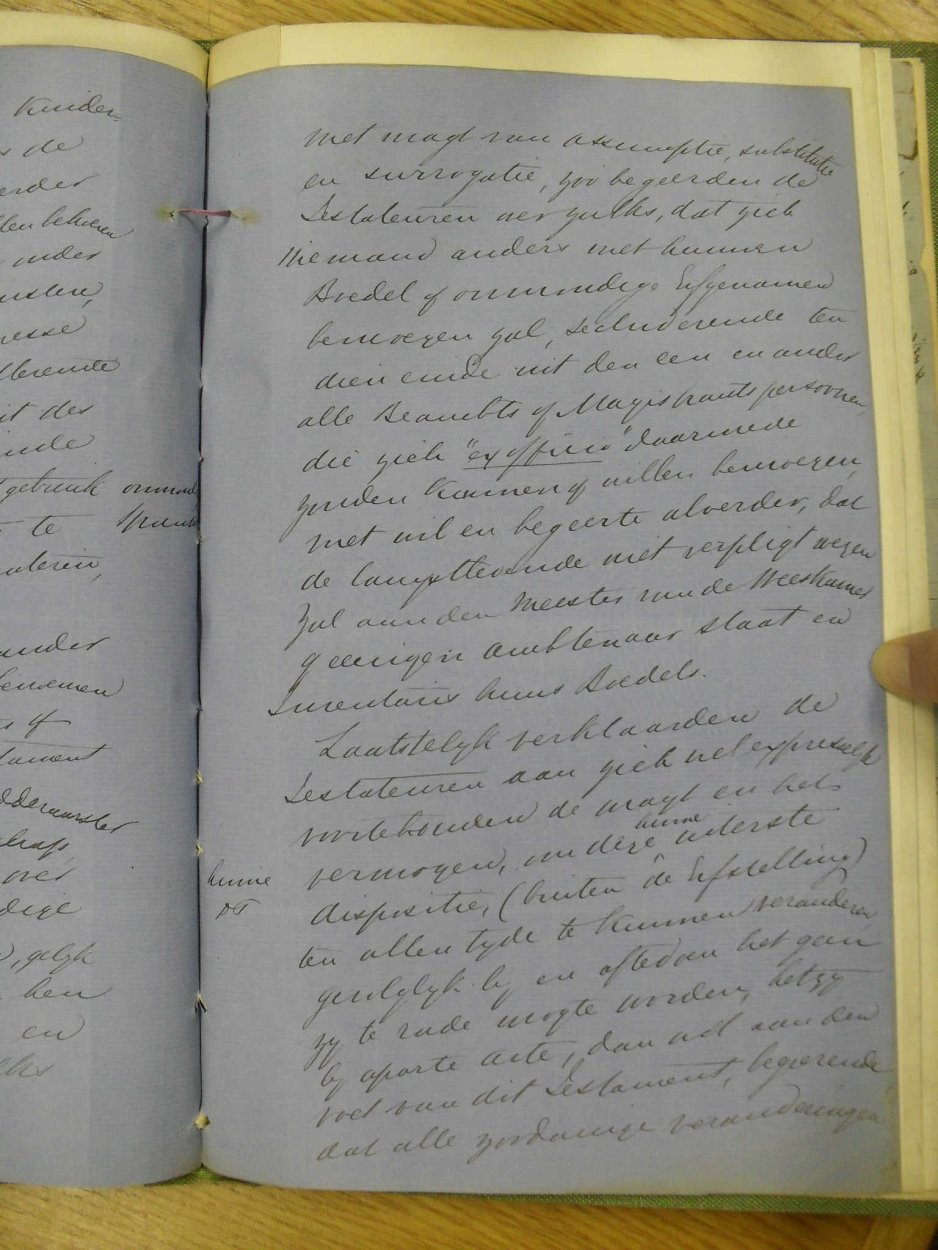 Kinder-
de
erder
len behoeven
onder
esse
it des
gebruik onmond
te
ateren,
ander
benoemen
of
tament
edderaarster
over
dige
, gelyk
hen
en
met magt van assumptie, substitutie
en surrogatie, zoo begeerden de
Testateuren over zulks, dat zich
Niemand anders met hunnen
Boedel of onmondige Erfgenamen
bemoeyen zal, secluderende ten
dien einde uit den een en ander
alle Beambts of Magistraats persoonen,
die zich "ex officio" daarmede
zouden kunnen of willen bemoeyen,
met wil en begeerte alverder, dat
de langstlevende niet verpligt wezen
zal aan den Meester van de Weeskamer
geenigen ambtenaar staat en
Inventaris huns Boedels.
Laatstelyk verklaarden de
Testateuren aan zich wel expresselyk
voortehouden de magt en het
vermogen, om deze hunne uiterste
hunne
dispositie, (buiten de Erfstelling)
ten allen tyde te kunnen veranderen,
gevolglyk by en aftedoen het geen
zy te rade mogte worden, hetzy
by aparte acte, dan wel aan den
voet van dit Testament, begeerende
dat alle zoodanige veranderingen